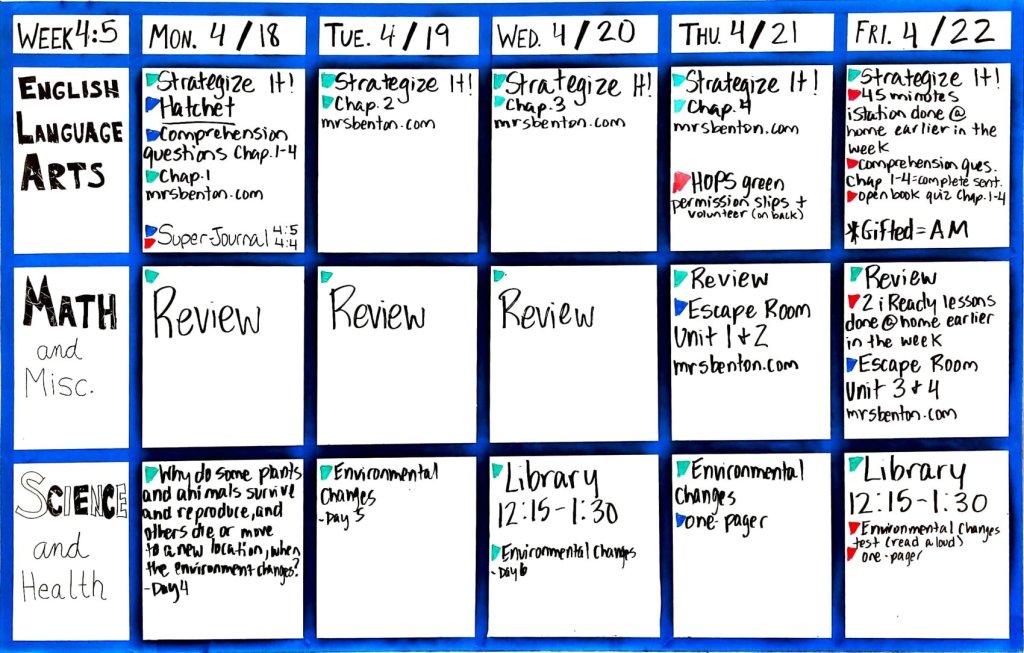 WEEK 4:5
MON. 4/18
TUE. 4/19
WED. 4/20
THU. 4/21
FRI. 4/22
ENGLISH
LANGUAGE
ARTS
Strategize It!
Hatchet
Comprehension
questions Chap. 1-4
Chap. 1
mrsbenton.com
Super-Journal 4:5
4:4
Strategize It!
Chap. 2
mrsbenton.com
Strategize It!
Chap. 3
mrsbenton.com
Strategize It!
Chap. 4
mrsbenton.com
HOPS green
permission slips +
volunteer (on back)
Strategize It!
45 minutes
iStation done @
home earlier in the
week
Comprehension ques.
Chap 1-4=complete sent.
open book quiz Chap. 1-4
*Gifted = AM
MATH
and
Misc.
Review
Review
Review
Review
Escape Room
Unit 1 + 2
mrsbenton.com
Review
2 i Ready lessons
done @ home earlier
in the week
Escape Room
Unit 3 + 4
mrsbenton.com
SCIENCE
and
Health
Why do some plants
and animals survive
and reproduce, and
others die or move
to a new location, when
the environment changes?
-Day 4
Environmental
Changes
-Day 5
Library
12:15-1:30
Environmental Changes
-Day 6
Environmental
Changes
one-pager
Library
12:15-1:30
Environmental Changes
test (read aloud)
one-pager